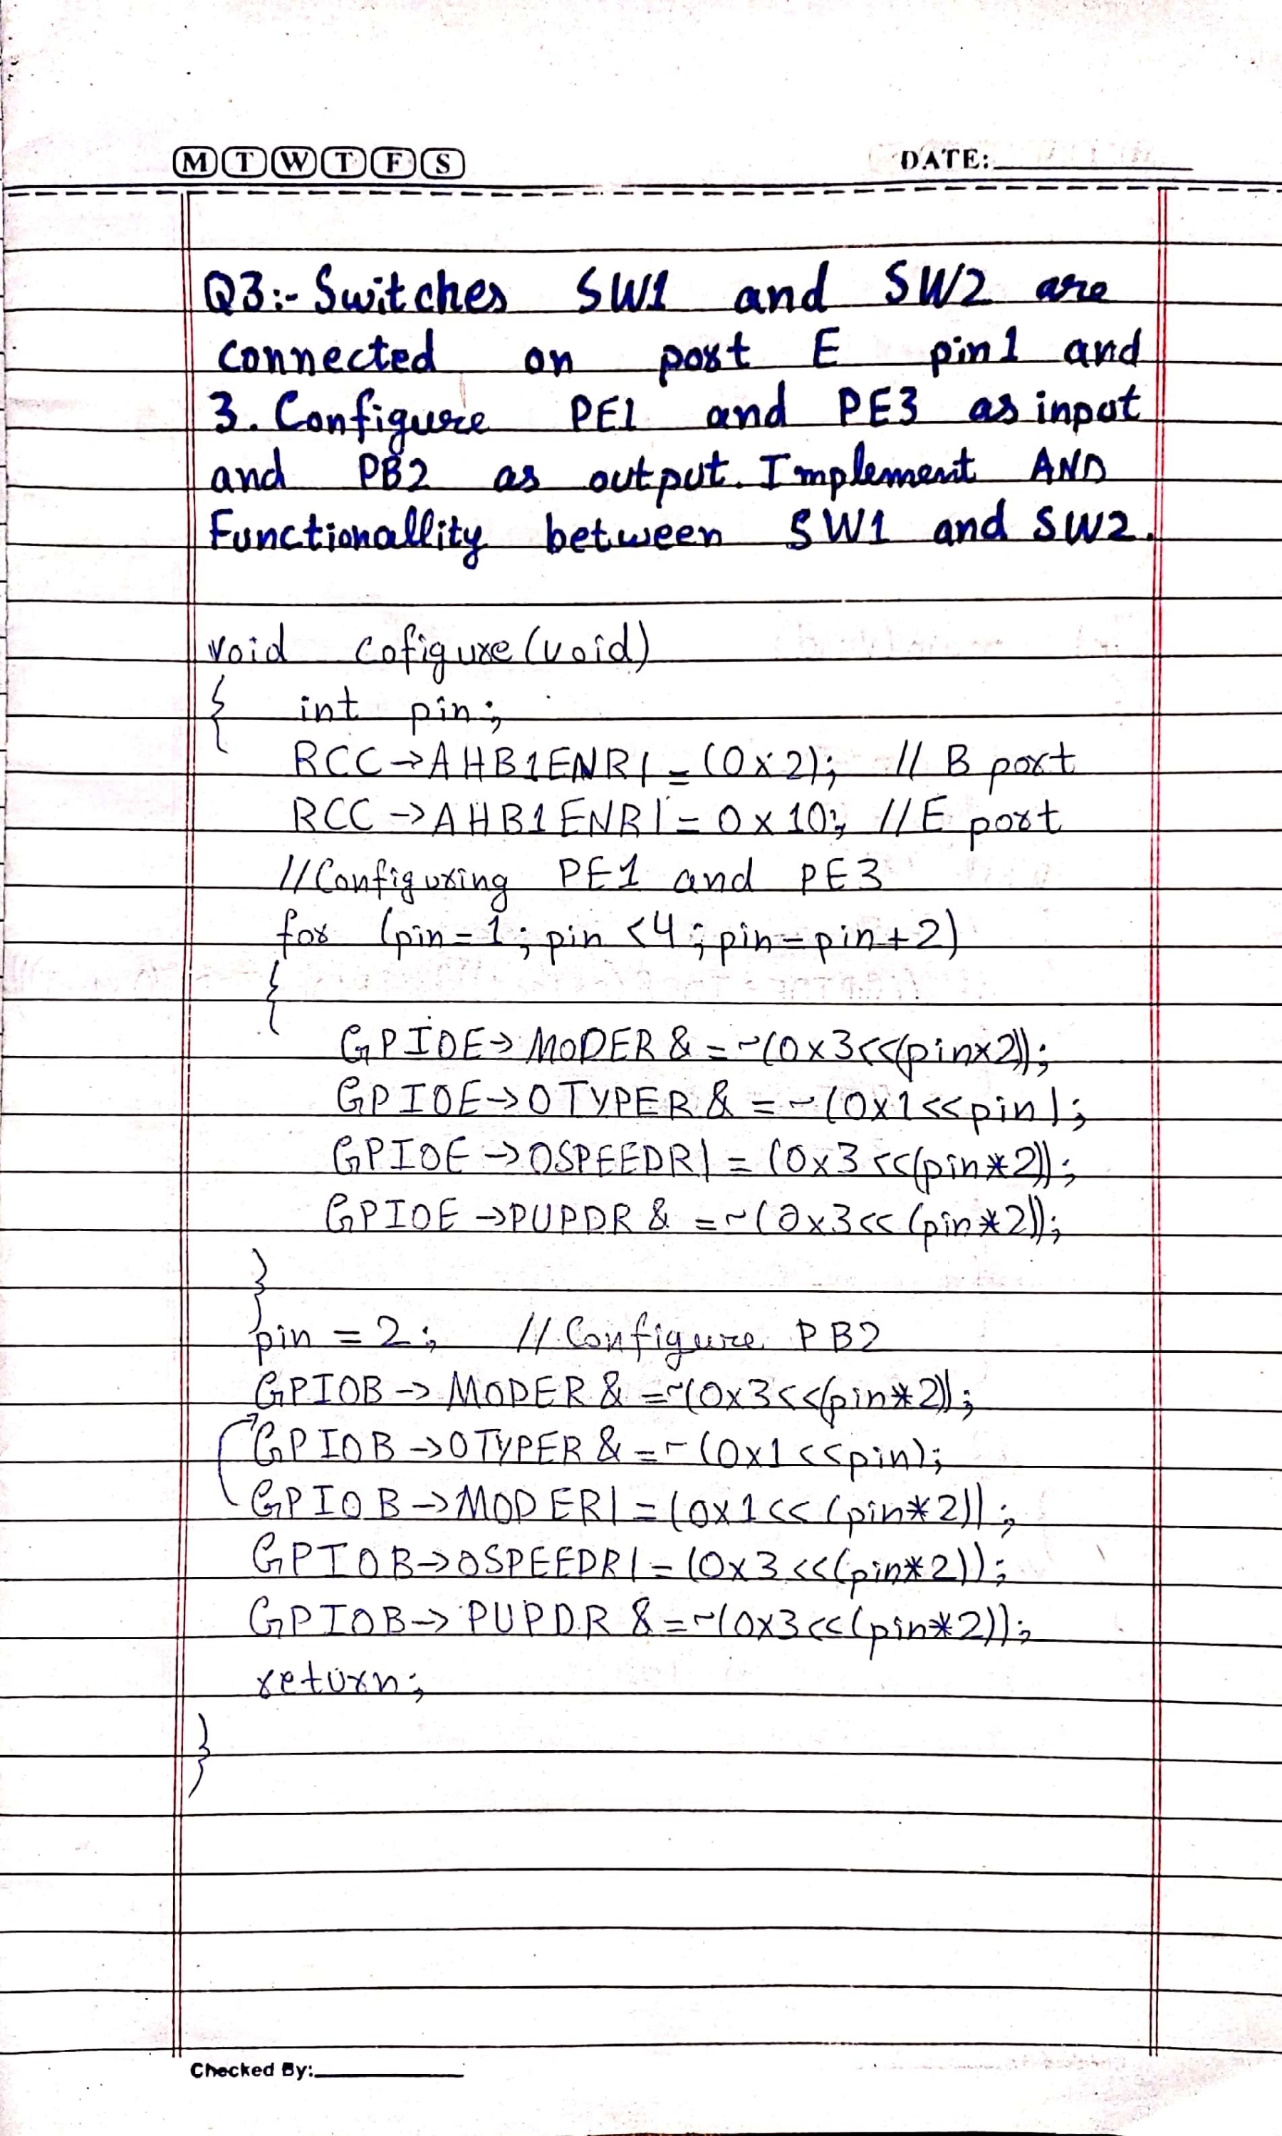 M T W T F S
DATE:
Q3:- Switches SW1 and SW2 are
connected on port E pin1 and
3. Configure PE1 and PE3 as input
and PB2 as output. Implement AND
Functionallity between SW1 and SW2.
void cofigure(void)
{ int pin;
RCC->AHB1ENR|=(0x2); // B port
RCC->AHB1ENR|=0x10; //E port
//Configuring PE1 and PE3
for (pin=1; pin<4; pin=pin+2)
{
GPIOE->MODER&=~(0x3<<(pinx2));
GPIOE->OTYPER&=~(0x1<<pin);
GPIOE->OSPEEDR|=(0x3<<(pin*2));
GPIOE->PUPDR&=~(0x3<<(pin*2));
}
pin=2; // Configure PB2
GPIOB->MODER&=~(0x3<<(pin*2));
GPIOB->OTYPER&=~(0x1<<pin);
GPIOB->MODER|=(0x1<<(pin*2));
GPIOB->OSPEEDR|=(0x3<<(pin*2));
GPIOB->PUPDR&=~(0x3<<(pin*2));
return;
}
Checked By: